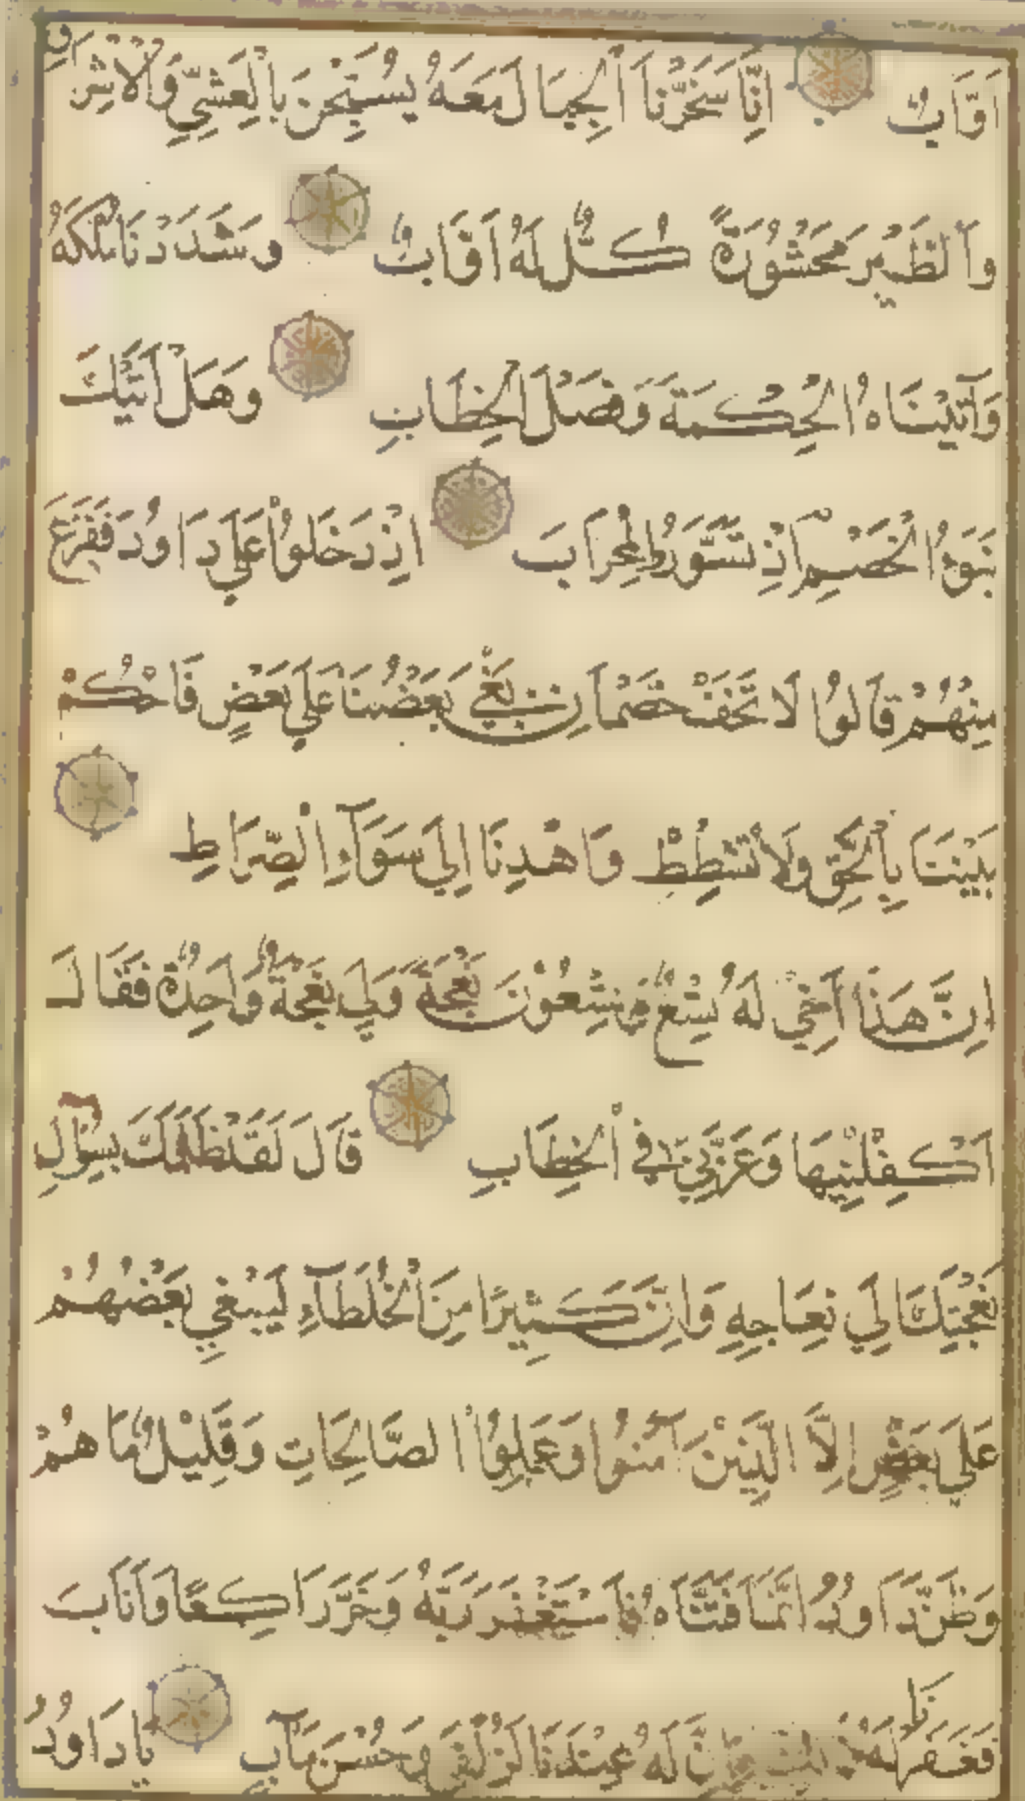 اَوَّابٌ اِنَّا سَخَّرْنَا الْجِبَالَ مَعَهُ يُسَبِّحْنَ بِالْعَشِيِّ وَالْاِشْرَاقِ
وَالطَّيْرَ مَحْشُورَةً كُلٌّ لَهُ اَوَّابٌ وَشَدَدْنَا مُلْكَهُ
وَآتَيْنَاهُ الْحِكْمَةَ وَفَصْلَ الْخِطَابِ وَهَلْ اَتٰيكَ
نَبَؤُا الْخَصْمِ اِذْ تَسَوَّرُوا الْمِحْرَابَ اِذْ دَخَلُوا عَلَى دَاوُدَ فَفَزِعَ
مِنْهُمْ قَالُوا لَا تَخَفْ خَصْمَانِ بَغَى بَعْضُنَا عَلَى بَعْضٍ فَاحْكُمْ
بَيْنَنَا بِالْحَقِّ وَلَا تُشْطِطْ وَاهْدِنَا اِلَى سَوَآءِ الصِّرَاطِ
اِنَّ هَذَا اَخِي لَهُ تِسْعٌ وَتِسْعُوْنَ نَعْجَةً وَلِيَ نَعْجَةٌ وَاحِدَةٌ فَقَالَ
اَكْفِلْنِيهَا وَعَزَّنِي فِي الْخِطَابِ قَالَ لَقَدْ ظَلَمَكَ بِسُؤَالِ
نَعْجَتِكَ اِلَى نِعَاجِهِ وَاِنَّ كَثِيرًا مِنَ الْخُلَطَآءِ لَيَبْغِي بَعْضُهُمْ
عَلَى بَعْضٍ اِلَّا الَّذِينَ آمَنُوا وَعَمِلُوا الصَّالِحَاتِ وَقَلِيْلٌ مَا هُمْ
وَظَنَّ دَاوُدُ اَنَّمَا فَتَنَّاهُ فَاسْتَغْفَرَ رَبَّهُ وَخَرَّ رَاكِعًا وَاَنَابَ
فَغَفَرْنَا لَهُ لَهُ عِنْدَنَا لَزُلْفَى وَحُسْنَ مَآبٍ يَا دَاوُدُ